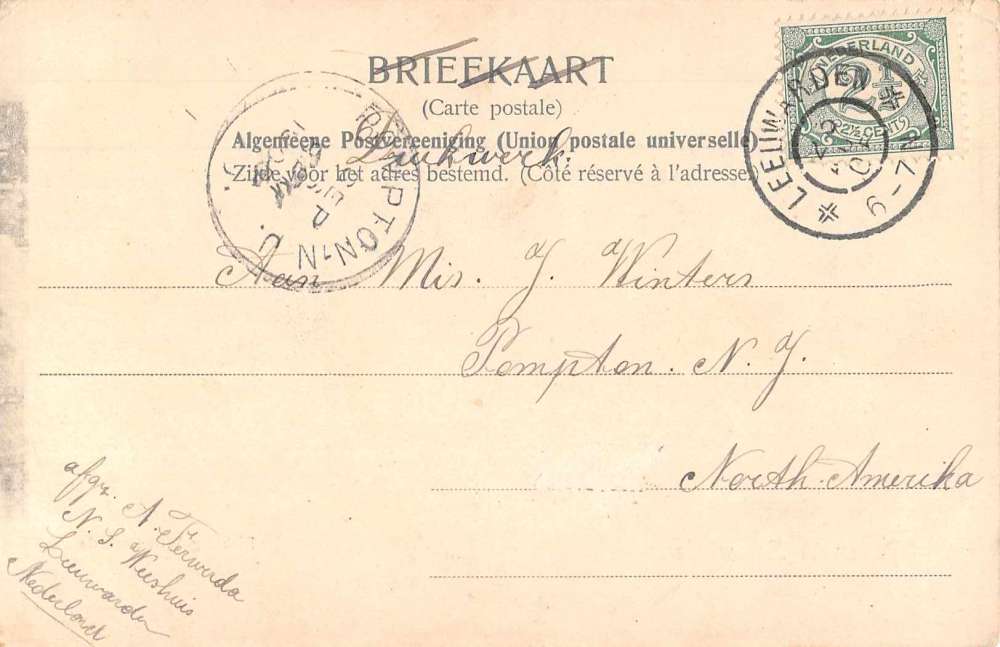 BRIEFKAART
(Carte postale)
Algemeene Postvereeniging (Union postale universelle)
Drukwerk.
Zijde voor het adres bestemd. (Côté réservé à l'adresse.)
NEDERLAND
2½
2½ CENT
LEEUWARDEN
6-7N
POMPTON, N.J.
SEP
Aan Mis. J. Winters
Pompton. N. J.
North-Amerika
afgz. A. Ferwerda
N. S. Weeshuis
Leeuwarden
Nederland